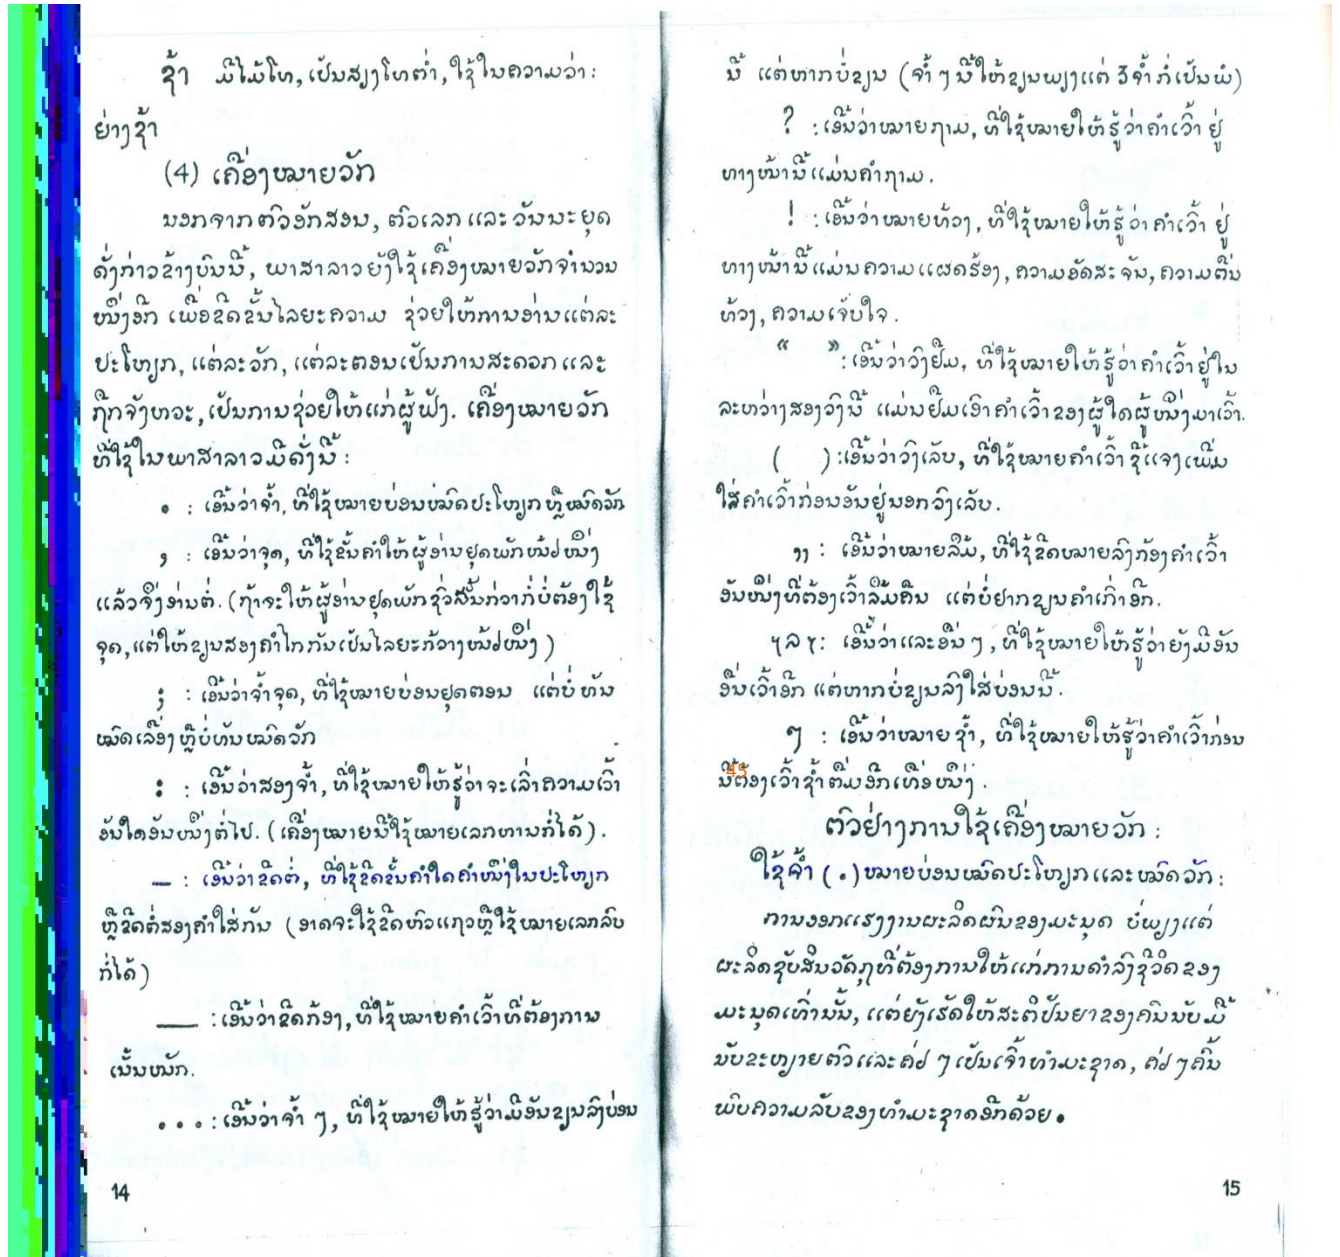 ຊ້ຳ ມີໄມ້ໂທ, ເປັນສຽງໂທຕ່ຳ, ໃຊ້ໃນຄວາມວ່າ:
ຍ່າງຊ້ຳ
(4) ເຄື່ອງໝາຍວັກ
ນອກຈາກຕົວອັກສອນ, ຕົວເລກ ແລະ ວັນນະຍຸດ
ດັ່ງກ່າວຂ້າງບົນນີ້, ພາສາລາວຍັງໃຊ້ເຄື່ອງໝາຍວັກຈຳນວນ
ໜຶ່ງອີກ ເພື່ອຂີດຂັ້ນໄລຍະຄວາມ ຊ່ວຍໃຫ້ການອ່ານແຕ່ລະ
ປະໂຫຍກ, ແຕ່ລະວັກ, ແຕ່ລະຕອນເປັນການສະດວກ ແລະ
ຖືກຈັງຫວະ, ເປັນການຊ່ວຍໃຫ້ແກ່ຜູ້ຟັງ. ເຄື່ອງໝາຍວັກ
ທີ່ໃຊ້ໃນພາສາລາວມີດັ່ງນີ້:
. : ເອີ້ນວ່າຈ້ຳ, ທີ່ໃຊ້ໝາຍບ່ອນໝົດປະໂຫຍກຫຼືໝົດວັກ
, : ເອີ້ນວ່າຈຸດ, ທີ່ໃຊ້ຂັ້ນຄຳໃຫ້ຜູ້ອ່ານຢຸດພັກໜ້ອຍໜຶ່ງ
ແລ້ວຈຶ່ງອ່ານຕໍ່. (ຖ້າຈະໃຫ້ຜູ້ອ່ານຢຸດພັກຊົ່ວສັ້ນກ່ວາກໍ່ບໍ່ຕ້ອງໃຊ້
ຈຸດ, ແຕ່ໃຫ້ຂຽນສອງຄຳໄກກັນເປັນໄລຍະກວ້າງໜ້ອຍໜຶ່ງ)
; : ເອີ້ນວ່າຈ້ຳຈຸດ, ທີ່ໃຊ້ໝາຍບ່ອນຢຸດຕອນ ແຕ່ບໍ່ທັນ
ໝົດເລື່ອງຫຼືບໍ່ທັນໝົດວັກ
: : ເອີ້ນວ່າສອງຈ້ຳ, ທີ່ໃຊ້ໝາຍໃຫ້ຮູ້ວ່າຈະເລົ່າຄວາມເວົ້າ
ອັນໃດອັນໜຶ່ງຕໍ່ໄປ. (ເຄື່ອງໝາຍນີ້ໃຊ້ໝາຍເລກຫານກໍ່ໄດ້).
— : ເອີ້ນວ່າຂີດຕໍ່, ທີ່ໃຊ້ຂີດຂັ້ນຄຳໃດຄຳໜຶ່ງໃນປະໂຫຍກ
ຫຼືຂີດຕໍ່ສອງຄຳໃສ່ກັນ (ອາດຈະໃຊ້ຂີດຫົວແຖວຫຼືໃຊ້ໝາຍເລກລົບ
ກໍ່ໄດ້)
___ : ເອີ້ນວ່າຂີດກ້ອງ, ທີ່ໃຊ້ໝາຍຄຳເວົ້າທີ່ຕ້ອງການ
ເນັ້ນໜັກ.
... : ເອີ້ນວ່າຈ້ຳ ໆ, ທີ່ໃຊ້ໝາຍໃຫ້ຮູ້ວ່າມີອັນຂຽນລົງບ່ອນ
14
ນີ້ ແຕ່ຫາກບໍ່ຂຽນ (ຈ້ຳ ໆ ນີ້ໃຫ້ຂຽນພຽງແຕ່ 3 ຈ້ຳ ກໍ່ເປັນພໍ)
? : ເອີ້ນວ່າໝາຍຖາມ, ທີ່ໃຊ້ໝາຍໃຫ້ຮູ້ວ່າຄຳເວົ້າ ຢູ່
ທາງໜ້ານີ້ແມ່ນຄຳຖາມ.
! : ເອີ້ນວ່າໝາຍທ້ວງ, ທີ່ໃຊ້ໝາຍໃຫ້ຮູ້ວ່າຄຳເວົ້າ ຢູ່
ທາງໜ້ານີ້ແມ່ນຄວາມແຜດຮ້ອງ, ຄວາມອັດສະຈັນ, ຄວາມຕື່ນ
ທ້ວງ, ຄວາມເຈັບໃຈ.
« » : ເອີ້ນວ່າວົງຢືມ, ທີ່ໃຊ້ໝາຍໃຫ້ຮູ້ວ່າຄຳເວົ້າຢູ່ໃນ
ລະຫວ່າງສອງວົງນີ້ ແມ່ນຢືມເອົາຄຳເວົ້າຂອງຜູ້ໃດຜູ້ໜຶ່ງມາເວົ້າ.
( ) : ເອີ້ນວ່າວົງເລັບ, ທີ່ໃຊ້ໝາຍຄຳເວົ້າຊີ້ແຈງເພີ່ມ
ໃສ່ຄຳເວົ້າກ່ອນອັນຢູ່ນອກວົງເລັບ.
,, : ເອີ້ນວ່າໝາຍລຶ້ມ, ທີ່ໃຊ້ຂີດໝາຍລົງກ້ອງຄຳເວົ້າ
ອັນໜຶ່ງທີ່ຕ້ອງເວົ້າລຶ້ມຄືນ ແຕ່ບໍ່ຢາກຂຽນຄຳເກົ່າອີກ.
ຯລຯ : ເອີ້ນວ່າແລະອື່ນ ໆ, ທີ່ໃຊ້ໝາຍໃຫ້ຮູ້ວ່າຍັງມີອັນ
ອື່ນເວົ້າອີກ ແຕ່ຫາກບໍ່ຂຽນລົງໃສ່ບ່ອນນີ້.
ໆ : ເອີ້ນວ່າໝາຍຊ້ຳ, ທີ່ໃຊ້ໝາຍໃຫ້ຮູ້ວ່າຄຳເວົ້າກ່ອນ
ນີ້ຕ້ອງເວົ້າຊ້ຳຕື່ມອີກເທື່ອໜຶ່ງ
45
ຕົວຢ່າງການໃຊ້ເຄື່ອງໝາຍວັກ:
ໃຊ້ຈ້ຳ (.) ໝາຍບ່ອນໝົດປະໂຫຍກແລະໝົດວັກ:
ການອອກແຮງງານຜະລິດຜົນຂອງມະນຸດ ບໍ່ພຽງແຕ່
ຜະລິດຊັບສິນວັດຖຸທີ່ຕ້ອງການໃຫ້ແກ່ການດຳລົງຊີວິດຂອງ
ມະນຸດເທົ່ານັ້ນ, ແຕ່ຍັງເຮັດໃຫ້ສະຕິປັນຍາຂອງຄົນນັບມື້
ນັບຂະຫຍາຍຕົວແລະຄ່ອຍ ໆ ເປັນເຈົ້າທຳມະຊາດ, ຄ່ອຍ ໆ ຄົ້ນ
ພົບຄວາມລັບຂອງທຳມະຊາດອີກດ້ວຍ.
15